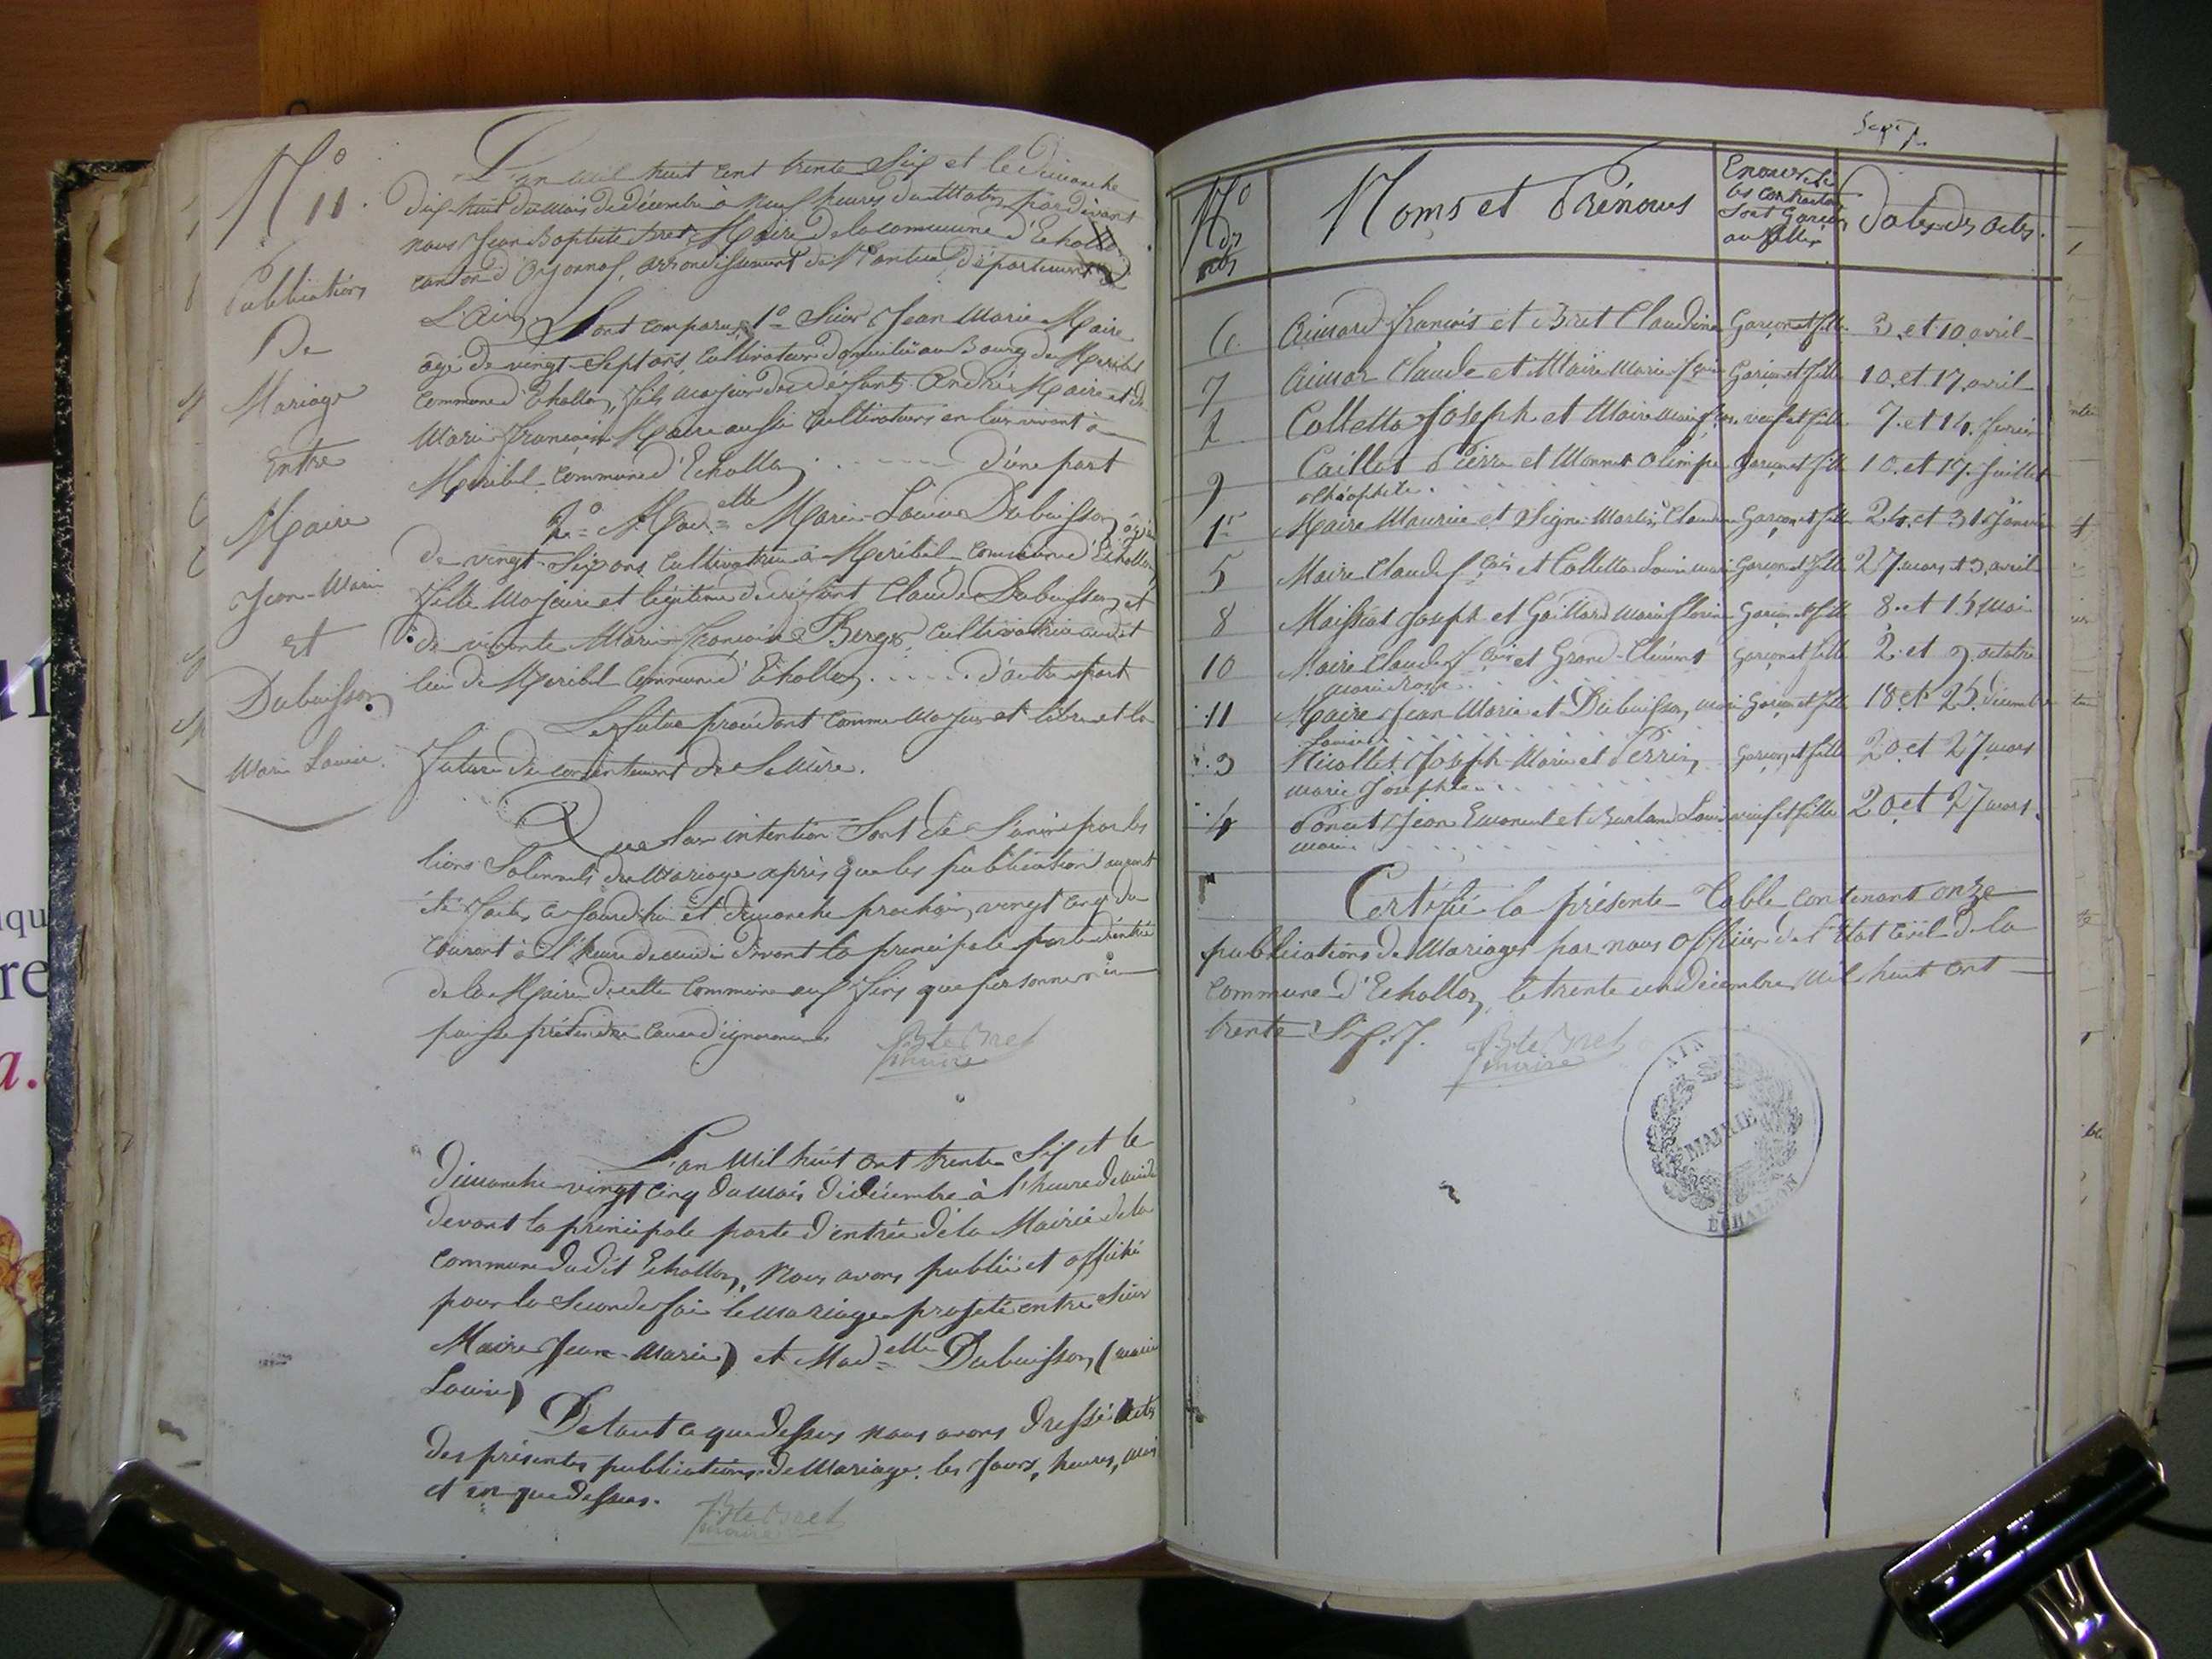 N° 11.
Publication
De
Mariage
Entre
Maire
Jean-Marie
et
Dubuisson
Marie Louise.
L'an mil huit cent trente Six et le dimanche
dix-huit du mois de décembre à neuf heures du Matin, pardevant
nous Jean Baptiste Bret Maire de la commune d'Echallon
canton d'Oyonnax, arrondissement de Nantua département de
L'Ain,
Sont comparus, 1° Sieur Jean Marie Maire
agé de vingt-Sept ans, Cultivateur domicilié au Bourg de Meribel
Commune d'Echallon, fils majeur des défunts André Maire et de
Marie Françoise Maire aussi Cultivateurs en leur vivant à
Meribel Commune d'Echallon d'une part
2° Mad.elle Marie-Louise Dubuisson agée
de vingt-Six ans cultivatrice à Meribel Commune d'Echallon
fille Majeure et légitime de défunt Claude Dubuisson et
de vivante Marie Françoise Berge, cultivatrice audit
lieu de Meribel Commune d'Echallon d'autre part
Le futur procédant comme Majeur et libre et la
future du consentement de Sa Mère.
Que leur intention Sont de S'unir par les
liens Solennels du Mariage après que les publications auront
été faites ce jourd'hui et dimanche prochain, vingt cinq du
Courant à l'heure de midi devant la principale porte d'entrée
de la Maire de cette Commune aux fins que personne n'en
puisse prétendre cause d'ignorance.
Bte Bret
maire
L'an Mil huit cent trente Six et le
Dimanche vingt cinq du mois de décembre à l'heure de midi
devant la principale porte d'entrée de la Mairie de la
commune dudit Echallon, Nous avons publié et affiché
pour la Seconde fois le mariage projeté entre Sieur
Maire (Jean-Marie) et Mad.elle Dubuisson, (marie
Louise)
De tout ce que dessus nous avons dressé acte
des présentes publications de Mariage, les Jours, heures, mois
et an que dessus.
Bte Bret
maire
N° des actes
Noms et Prénoms
Enoncer si les contractans sont Garçon ou fille
Dates des actes.
6 Aimard François et Bret Claudine Garçon et fille 3 et 10 avril
7 Aimar Claude et Maire Marie Garçon et fille 10 et 17 avril
2 Colletta Joseph et Maire Marie veuf et fille 7 et 14 fevrier
9 Caillat Pierre et Monnet Olimpe Garçon et fille 10 et 17 Juillet
Théophile
1er Maire Maurice et Seigne-Martin, Claudine Garçon et fille 24 et 31 Janvier
5 Maire Claude f.çois et Colletta Louise marie Garçon et fille 27 mars et 3 avril
8 Maissiat Joseph et Gaillard Marie Garçon et fille 8 et 15 Mai
10 Maire Claude f.çois et Grand-Clément Garçon et fille 2 et 9 octobre
Marie Rose
11 Maire Jean Marie et Dubuisson, marie Garçon et fille 18 et 25 décembre
Louise
3 Nicollet Joseph Marie et Perrin, Garçon et fille 20 et 27 mars
Marie Josephte
4 Poncet Jean Emanuel et Burland Louise veuf et fille 20 et 27 mars.
Marie
Certifié la présente Table contenant onze
publications de Mariages par nous Officier de l'Etat Civil de la
Commune d'Echallon, le trente un décembre mil huit cent
trente Six.
Bte Bret
maire
AIN
MAIRIE
ECHALLON